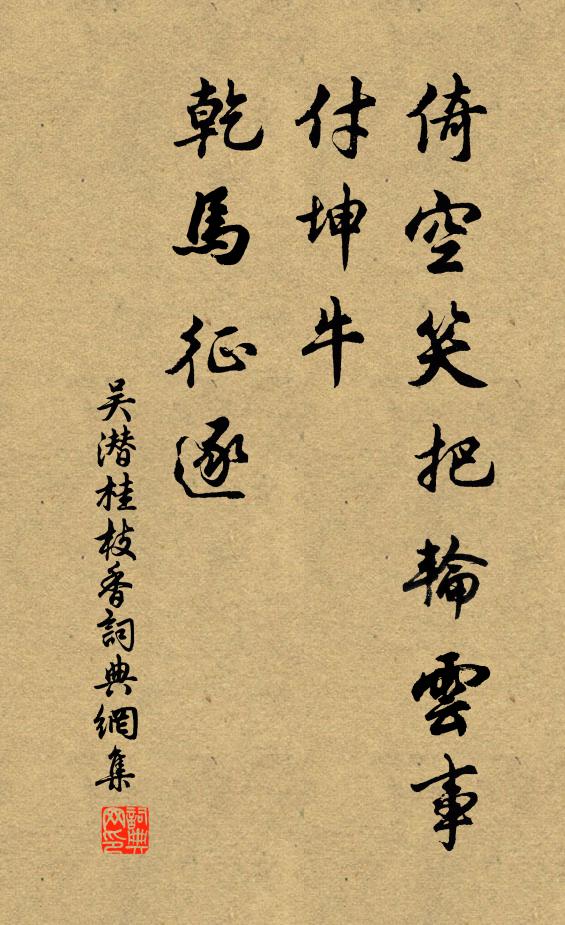 倚空笑把輪雲事
付坤牛
乾馬征逐
吴潜桂枝香詞典網集
詞典网印